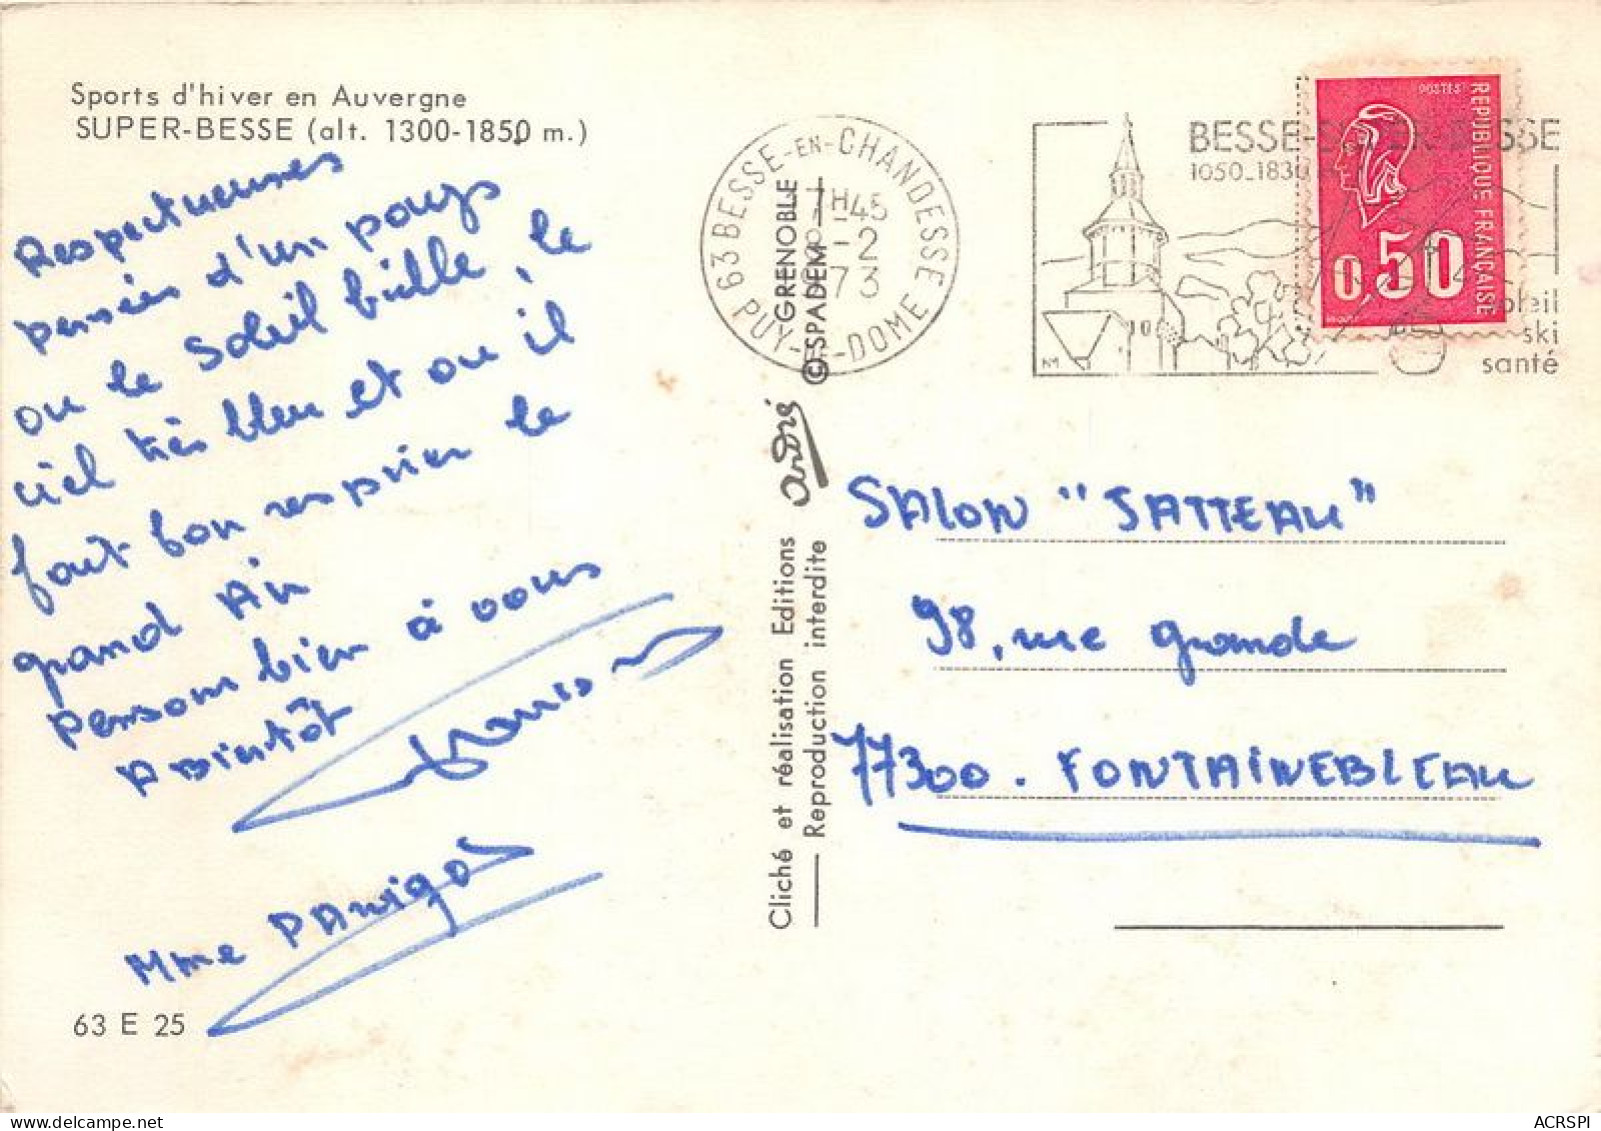 Sports d'hiver en Auvergne
SUPER-BESSE (alt. 1300-1850 m.)
Respectueuses
pensées d'un pays
ou le soleil brille, le
ciel très bleu et ou il
fait bon respirer le
grand Air
Pensons bien à vous
A Bientôt
Mme
63 E 25
63 BESSE-EN-CHANDESSE
7H45
-2
1973
PUY-DE-DOME
BESSE-SUPER-BESSE
1050-1830
soleil
ski
santé
POSTES
REPUBLIQUE FRANÇAISE
0,50
GRENOBLE
©SPADEM
Cliché et réalisation Editions
Reproduction interdite
SALON "JATTEAU"
98, rue grande
77300. FONTAINEBLEAU
delcampe.net
ACRSPI